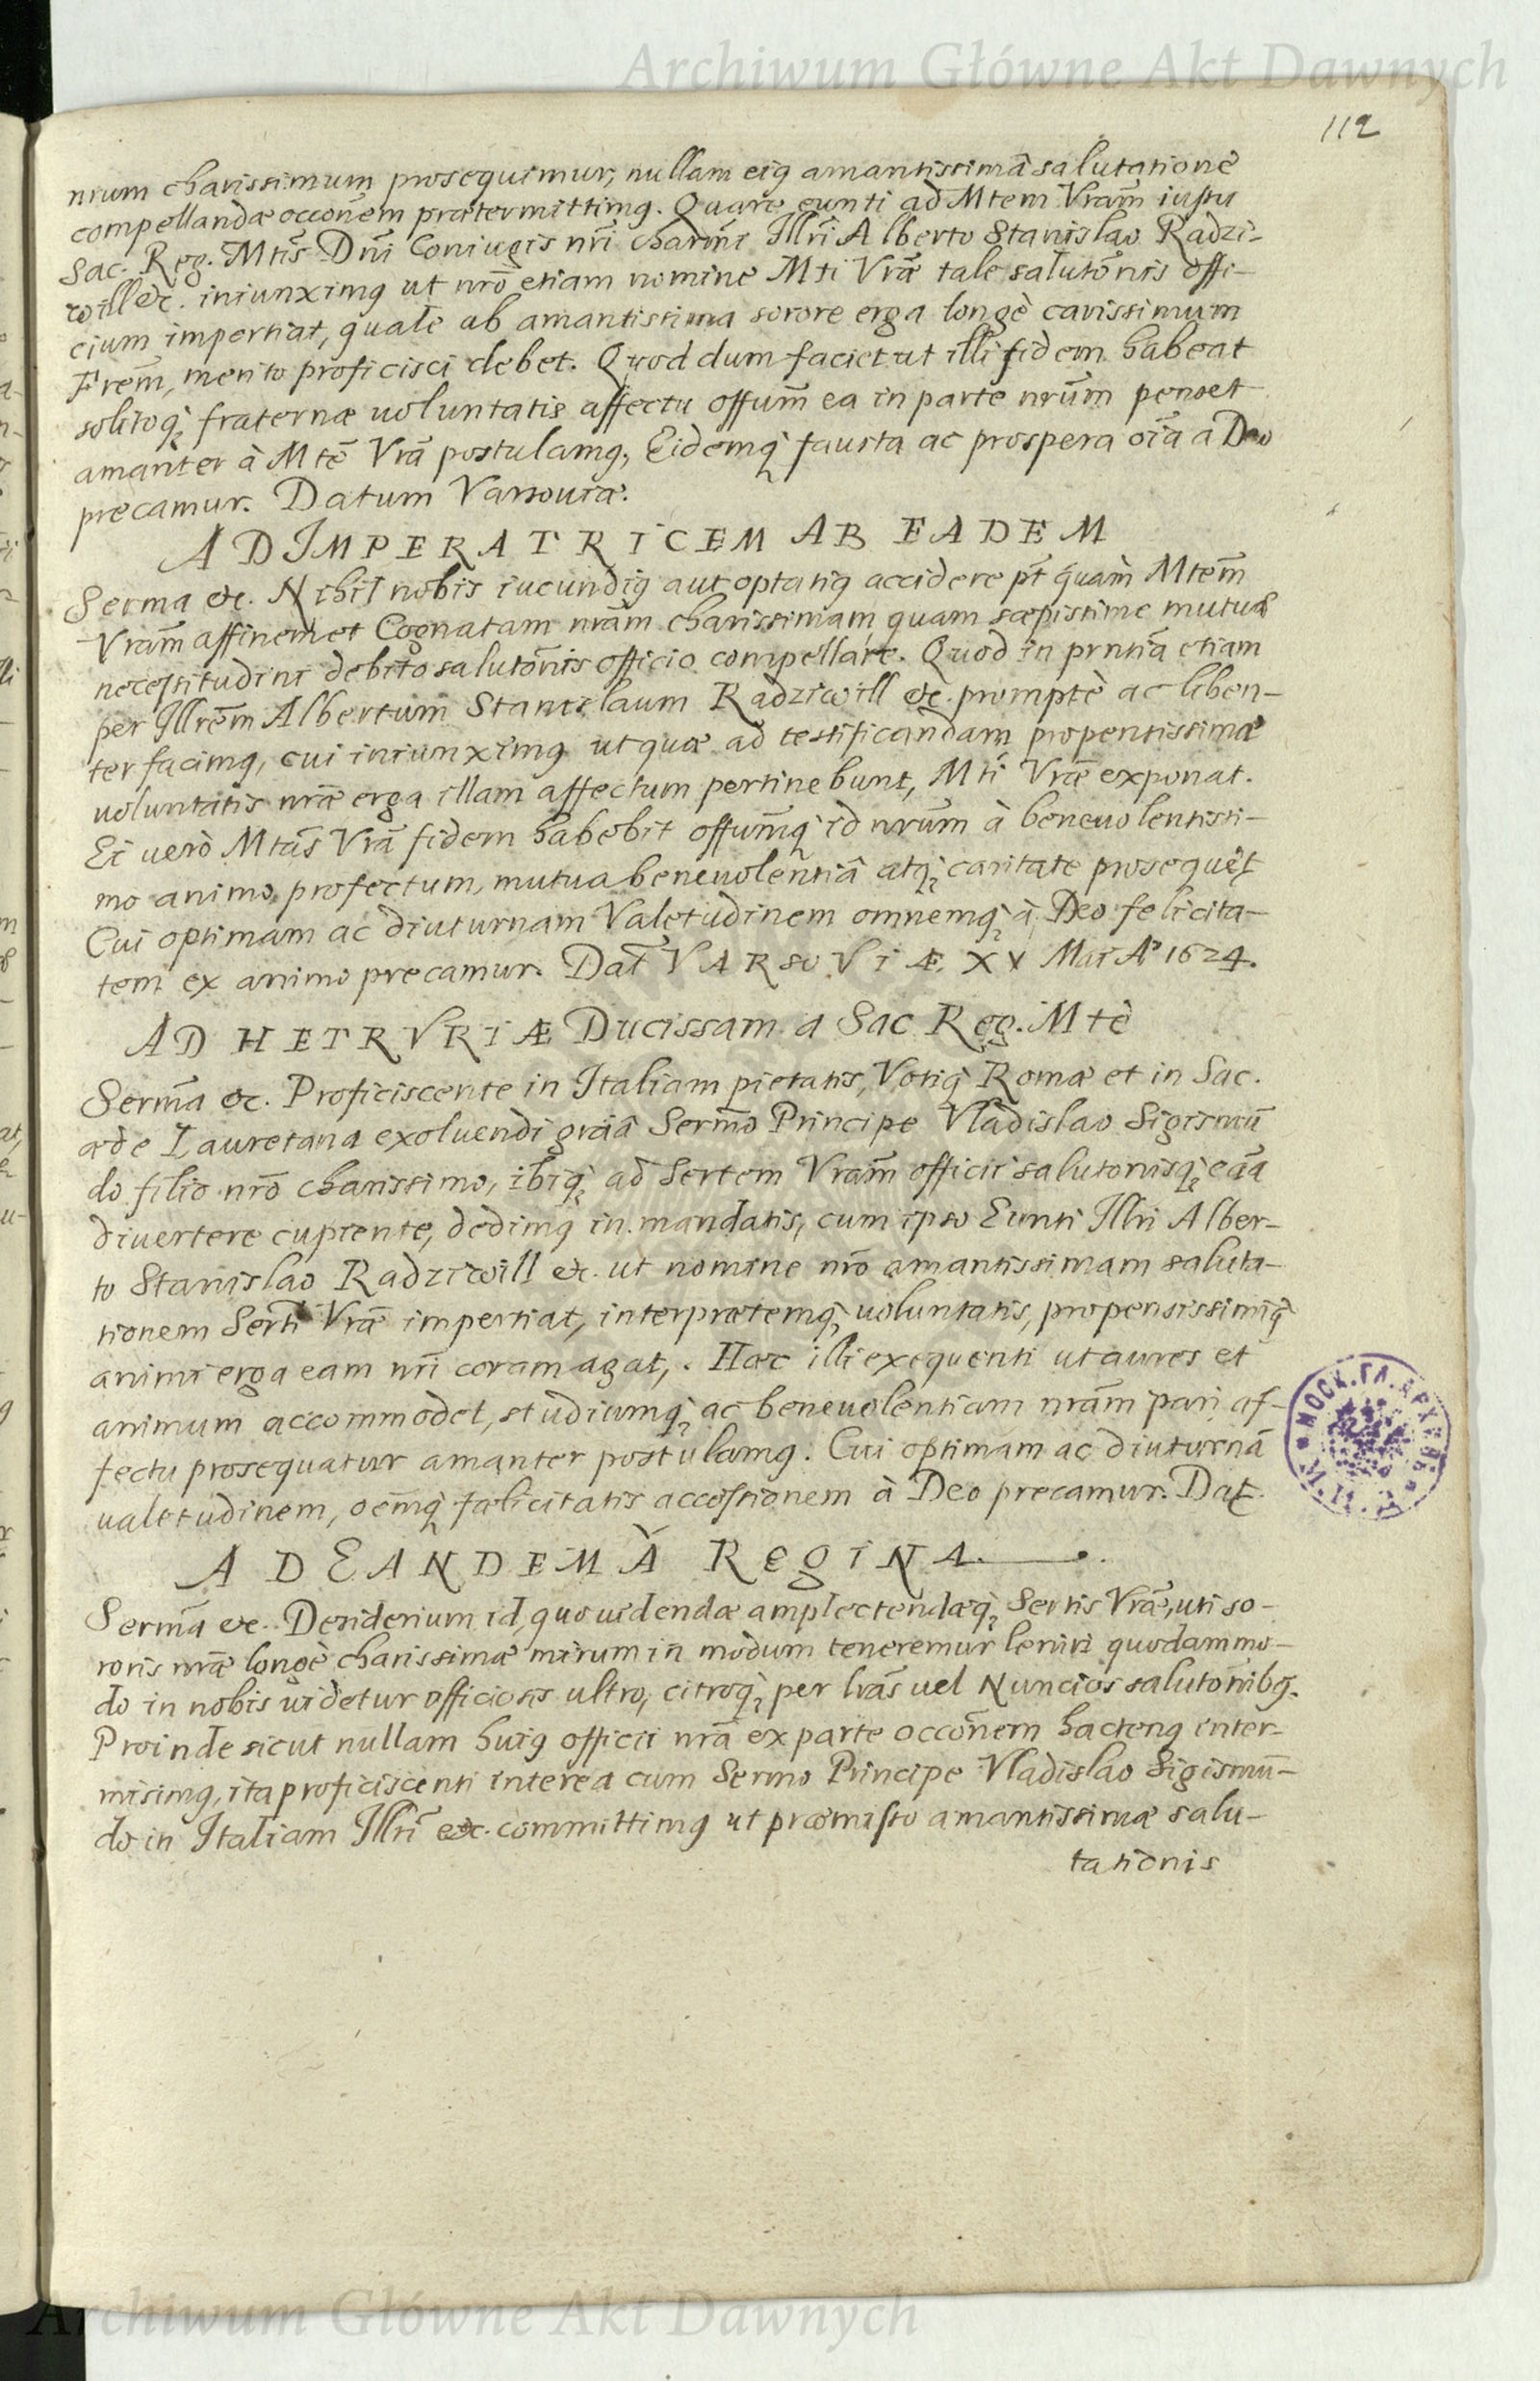 Archiwum Główne Akt Dawnych
112
nrum charissimum prosequimur, nullam eiq amantissimâ salutationē
compellandæ occōnem prætermittimq. Quare eunti ad Mtem Vram̄ iussu
Sac. Reg. Mtis̄ Dn̄i Coniugis nr̄i charmi Illr̄i Alberto Stanislao Radzi-
will etc. iniunximq ut nrō etiam nomine Mti Vræ tale salutōnis offi-
cium impertiat, quale ab amantissima sorore erga longè carissimum
Frem̄, merito proficisci debet. Quod dum faciet ut illi fidem habeat
solitoq fraternæ uoluntatis affectu offum̄ ea in parte nrum̄ penset
amanter à Mtē Vrā postulamq, Eidemq fausta ac prospera oīa a Deo
precamur. Datum Varsouiæ.
AD IMPERATRICEM AB EADEM
Serma etc. Nihil nobis iucundiq aut optatiq accidere pt̄ quàm Mtem̄
Vram̄ affinem et Cognatam nrām charissimam quam sæpissime mutuæ
necessitudini debito salutōnis officio compellare. Quod in prntiā etiam
per Illrem̄ Albertum Stanislaum Radziwill etc. promptè ac liben-
ter facimq, cui iniunximq ut quæ ad testificandam propentissimæ
uoluntatis nræ erga illam affectum pertinebunt, Mti Vræ exponat.
Ei uerò Mtas̄ Vrā fidem habebit offum̄q id nrum̄ à beneuolentissi-
mo animo profectum, mutua beneuolentiâ atq caritate prosequet
Cui optimam ac diuturnam Valetudinem omnemq à Deo felicita-
tem ex animo precamur. Dat̄ VARSOVIÆ. XV Mai A° 1624.
AD HETRVRIÆ Ducissam a Sac Reg. Mtè
Serma̅ etc. Proficiscente in Italiam pietatis, Votiq Romæ et in Sac.
æde Lauretana exoluendi grāiâ Sermō Principe Vladislao Sigismū
do filio nrō charissimo, ibiq ad Sertem Vram̄ officii salutonisq cāa
diuertere cupiente, dedimq in mandatis, cum ipso Eunti Illri Alber-
to Stanislao Radziwill etc. ut nomine nrō amantissimam saluta-
tionem Serti Vræ impertiat, interpretemq uoluntatis, propensissimiq
animi erga eam nri coram agat,. Hæc illi exequenti ut aures et
animum accommodet, studiumq ac beneuolentiam nrām pari af-
fectu prosequatur amanter postulamq. Cui optimam ac diuturnā
ualetudinem, oem̄q fælicitatis accessionem à Deo precamur. Dat.
AD EANDEM À REGINA.
Serma̅ etc. Desiderium id, quo uidendæ amplectendæq Sertis Vræ, uti so-
roris nræ longè charissimæ mirum in modum teneremur leniri quodammo-
do in nobis uidetur officiosis ultro, citroq per lrās uel Nuncios salutōnibq.
Proinde sicut nullam huiq officii nrā ex parte occōnem hactenq inter-
misimq, ita proficiscenti interea cum Sermo Principe Vladislao Sigismū-
do in Italiam Illri etc. committimq ut præmisso amantissimæ salu-
tationis
МОСК. ГЛ. АРХИВ
Archiwum Główne Akt Dawnych